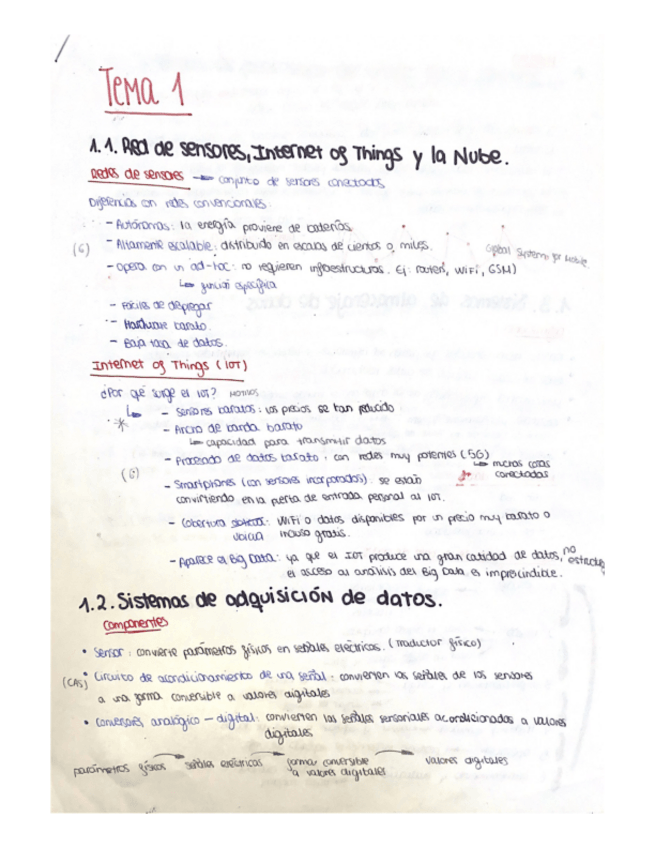 Tema 1
1.1. Red de sensores, Internet of Things y la Nube.
Redes de sensores → conjunto de sensores conectados
Diferencias con redes convencionales:
- Autónomas: la energía proviene de baterías.
(6) - Altamente escalable: distribuido en escalas de cientos o miles.
Global System for Mobile
- Opera con un ad-hoc: no requieren infraestructuras. Ej: routers, WiFi, GSM)
↳ función específica
- Fáciles de desplegar
- Hardware barato.
- Baja tasa de datos.
Internet of Things (IOT)
¿Por qué surge el IOT? MOTIVOS
* ↳ - Sensores baratos: los precios se han reducido
- Ancho de banda barato
↳ capacidad para transmitir datos
- Procesado de datos barato: con redes muy potentes (5G)
↳ muchas cosas conectadas
(6) - Smartphones (con sensores incorporados): se están
convirtiendo en la puerta de entrada personal al IOT.
- Cobertura: WiFi o datos disponibles por un precio muy barato o
incluso gratis.
- Aparece el Big Data: ya que el IOT produce una gran cantidad de datos, no
el acceso al análisis del Big Data es imprescindible.
1.2. Sistemas de adquisición de datos.
Componentes
• Sensor: convierte parámetros físicos en señales eléctricas. (traductor físico)
(CAS) • Circuito de acondicionamiento de una señal: convierten las señales de los sensores
a una forma convertible a valores digitales
• Conversores analógico - digital: convierten las señales sensoriales acondicionadas a valores
digitales
parámetros físicos → señales eléctricas → forma convertible a valores digitales → valores digitales